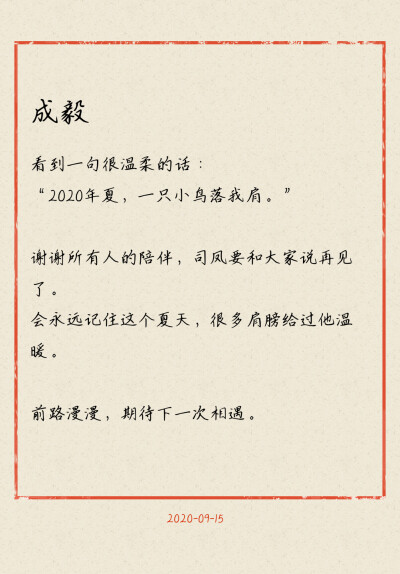 成毅
看到一句很温柔的话：
“2020年夏，一只小鸟落我肩。”
谢谢所有人的陪伴，司凤要和大家说再见
了。
会永远记住这个夏天，很多肩膀给过他温
暖。
前路漫漫，期待下一次相遇。
2020-09-15